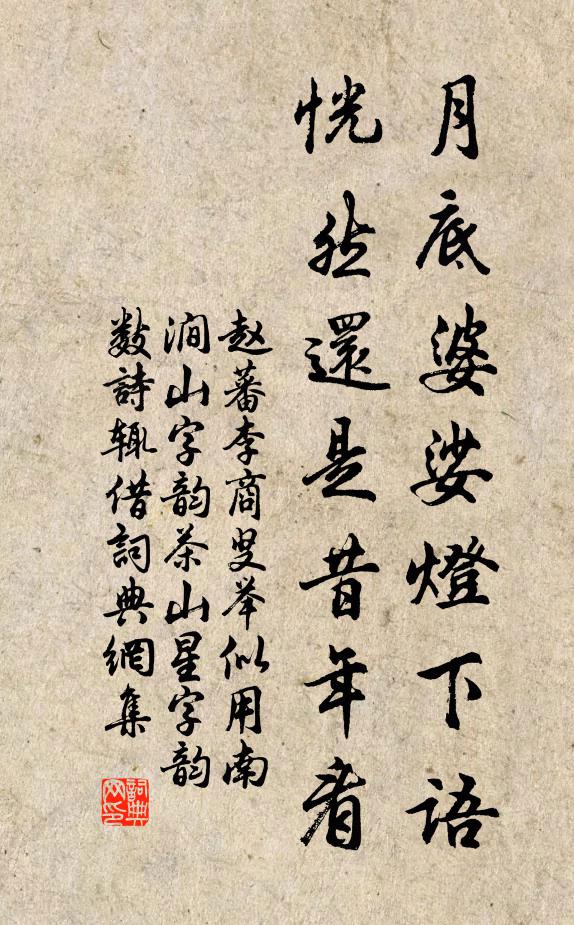 月底婆娑燈下語
恍然還是昔年看
赵蕃李商叟举似用南
澗山字韵茶山星字韵
数詩辄借詞典網集
詞典网印